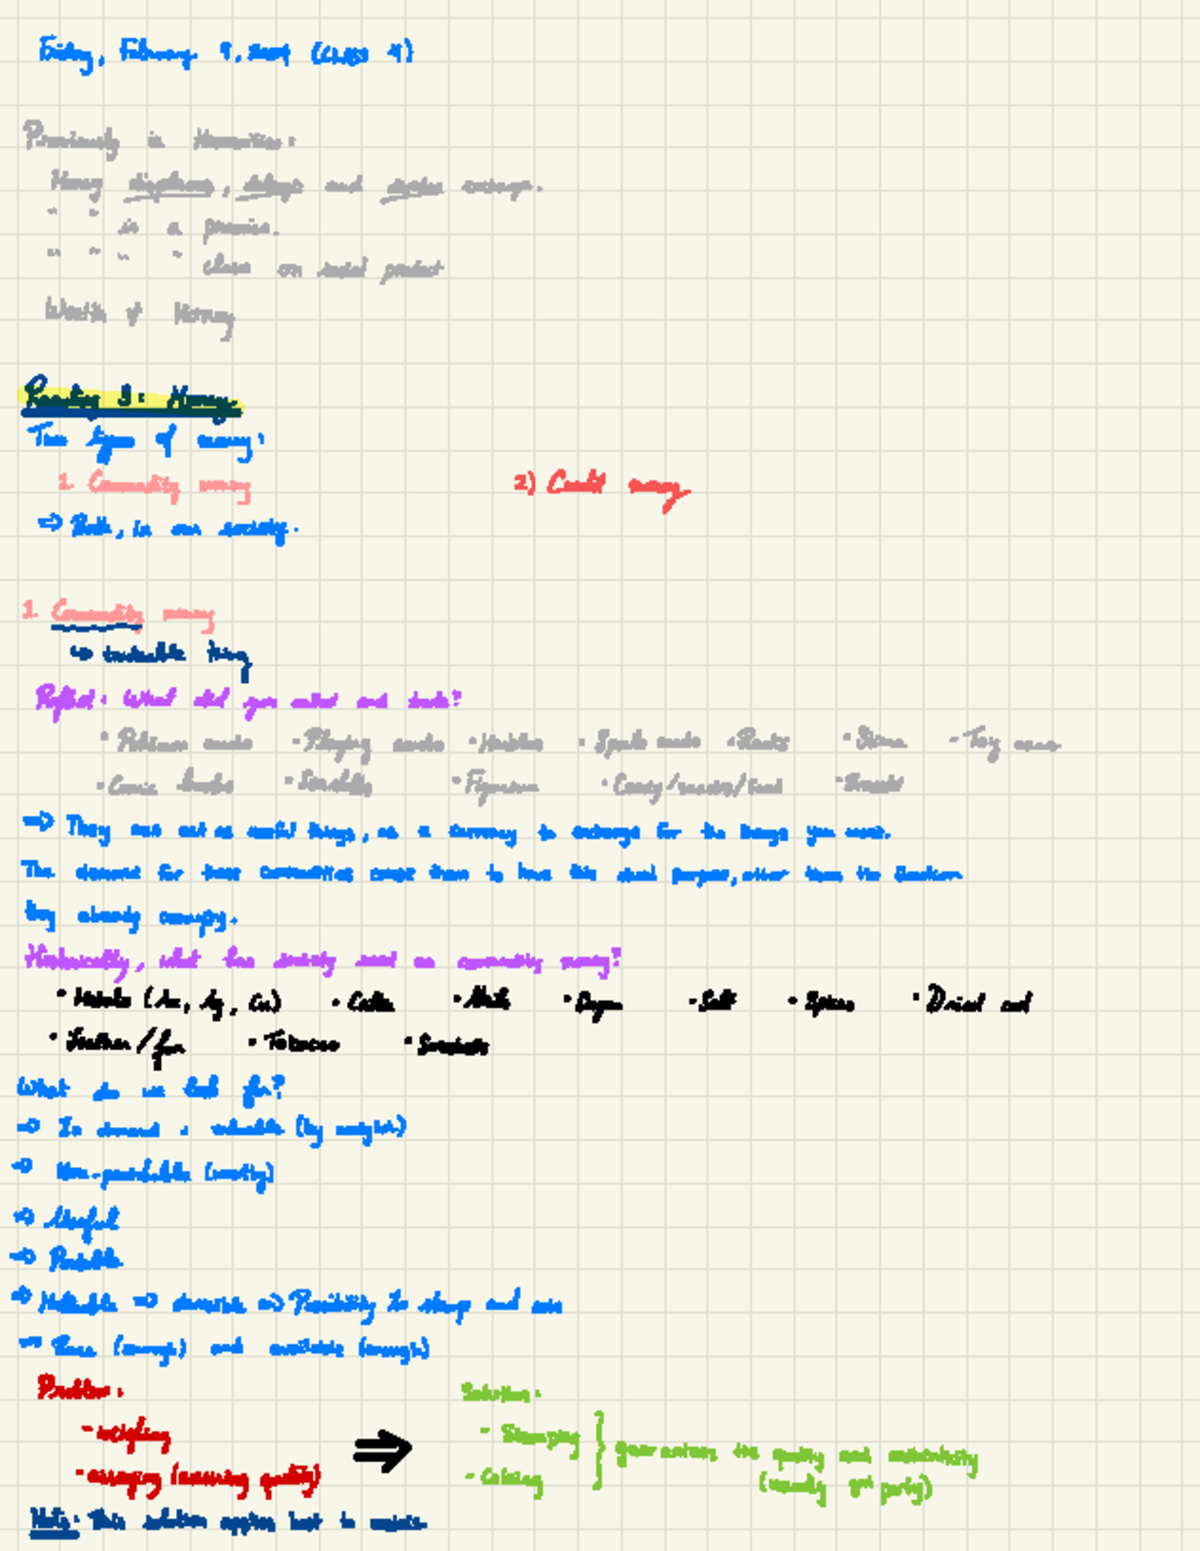 Friday, February 9, 2024 (CLASS 4)
Previously in Humanities:
Money displaces, delays and exchange.
" " is a promise.
" " " " claim on social product
Wealth ≠ Money
Reading 3: Money
Two types of money:
1. Commodity money 2) Credit money
⇒ Both, in our society.
1. Commodity money
↳ tradeable thing
Reflect: What did you collect and trade?
• Pokémon cards • Playing cards • Marbles • Sports cards • Rocks • Slime • Toy cars
• Comic books • Seashells • Figurines • Candy/snacks/food
⇒ They can act as useful things, as a currency to exchange for the things you want.
The demand for these commodities cause them to have this dual purpose, other than the function
they already occupy.
Historically, what has society used as commodity money?
• Metals (Au, Ag, Cu) • Cattle • Salt • Spices • Dried cod
• Leather/fur • Tobacco • Seashells
What do we look for?
⇒ In demand : valuable (by weight)
⇒ Non-perishable (mostly)
⇒ Useful
⇒ Portable
⇒ Malleable ⇒ divisible ⇒ Possibility to stamp and
⇒ Rare (enough) and available (enough)
Problem: Solution:
- weighing ⇒ - Stamping } guarantees the quality and authenticity
- assaying (assessing quality) - Coining (usually party)
Note: This solution applies best to metals.